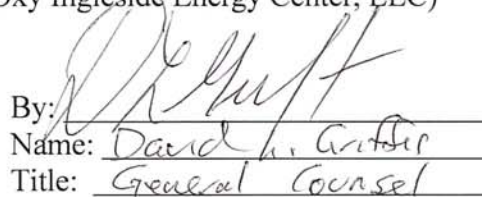 Oxy Ingleside Energy Center, LLC)
By:
Name: David L. Griffis
Title: General Counsel